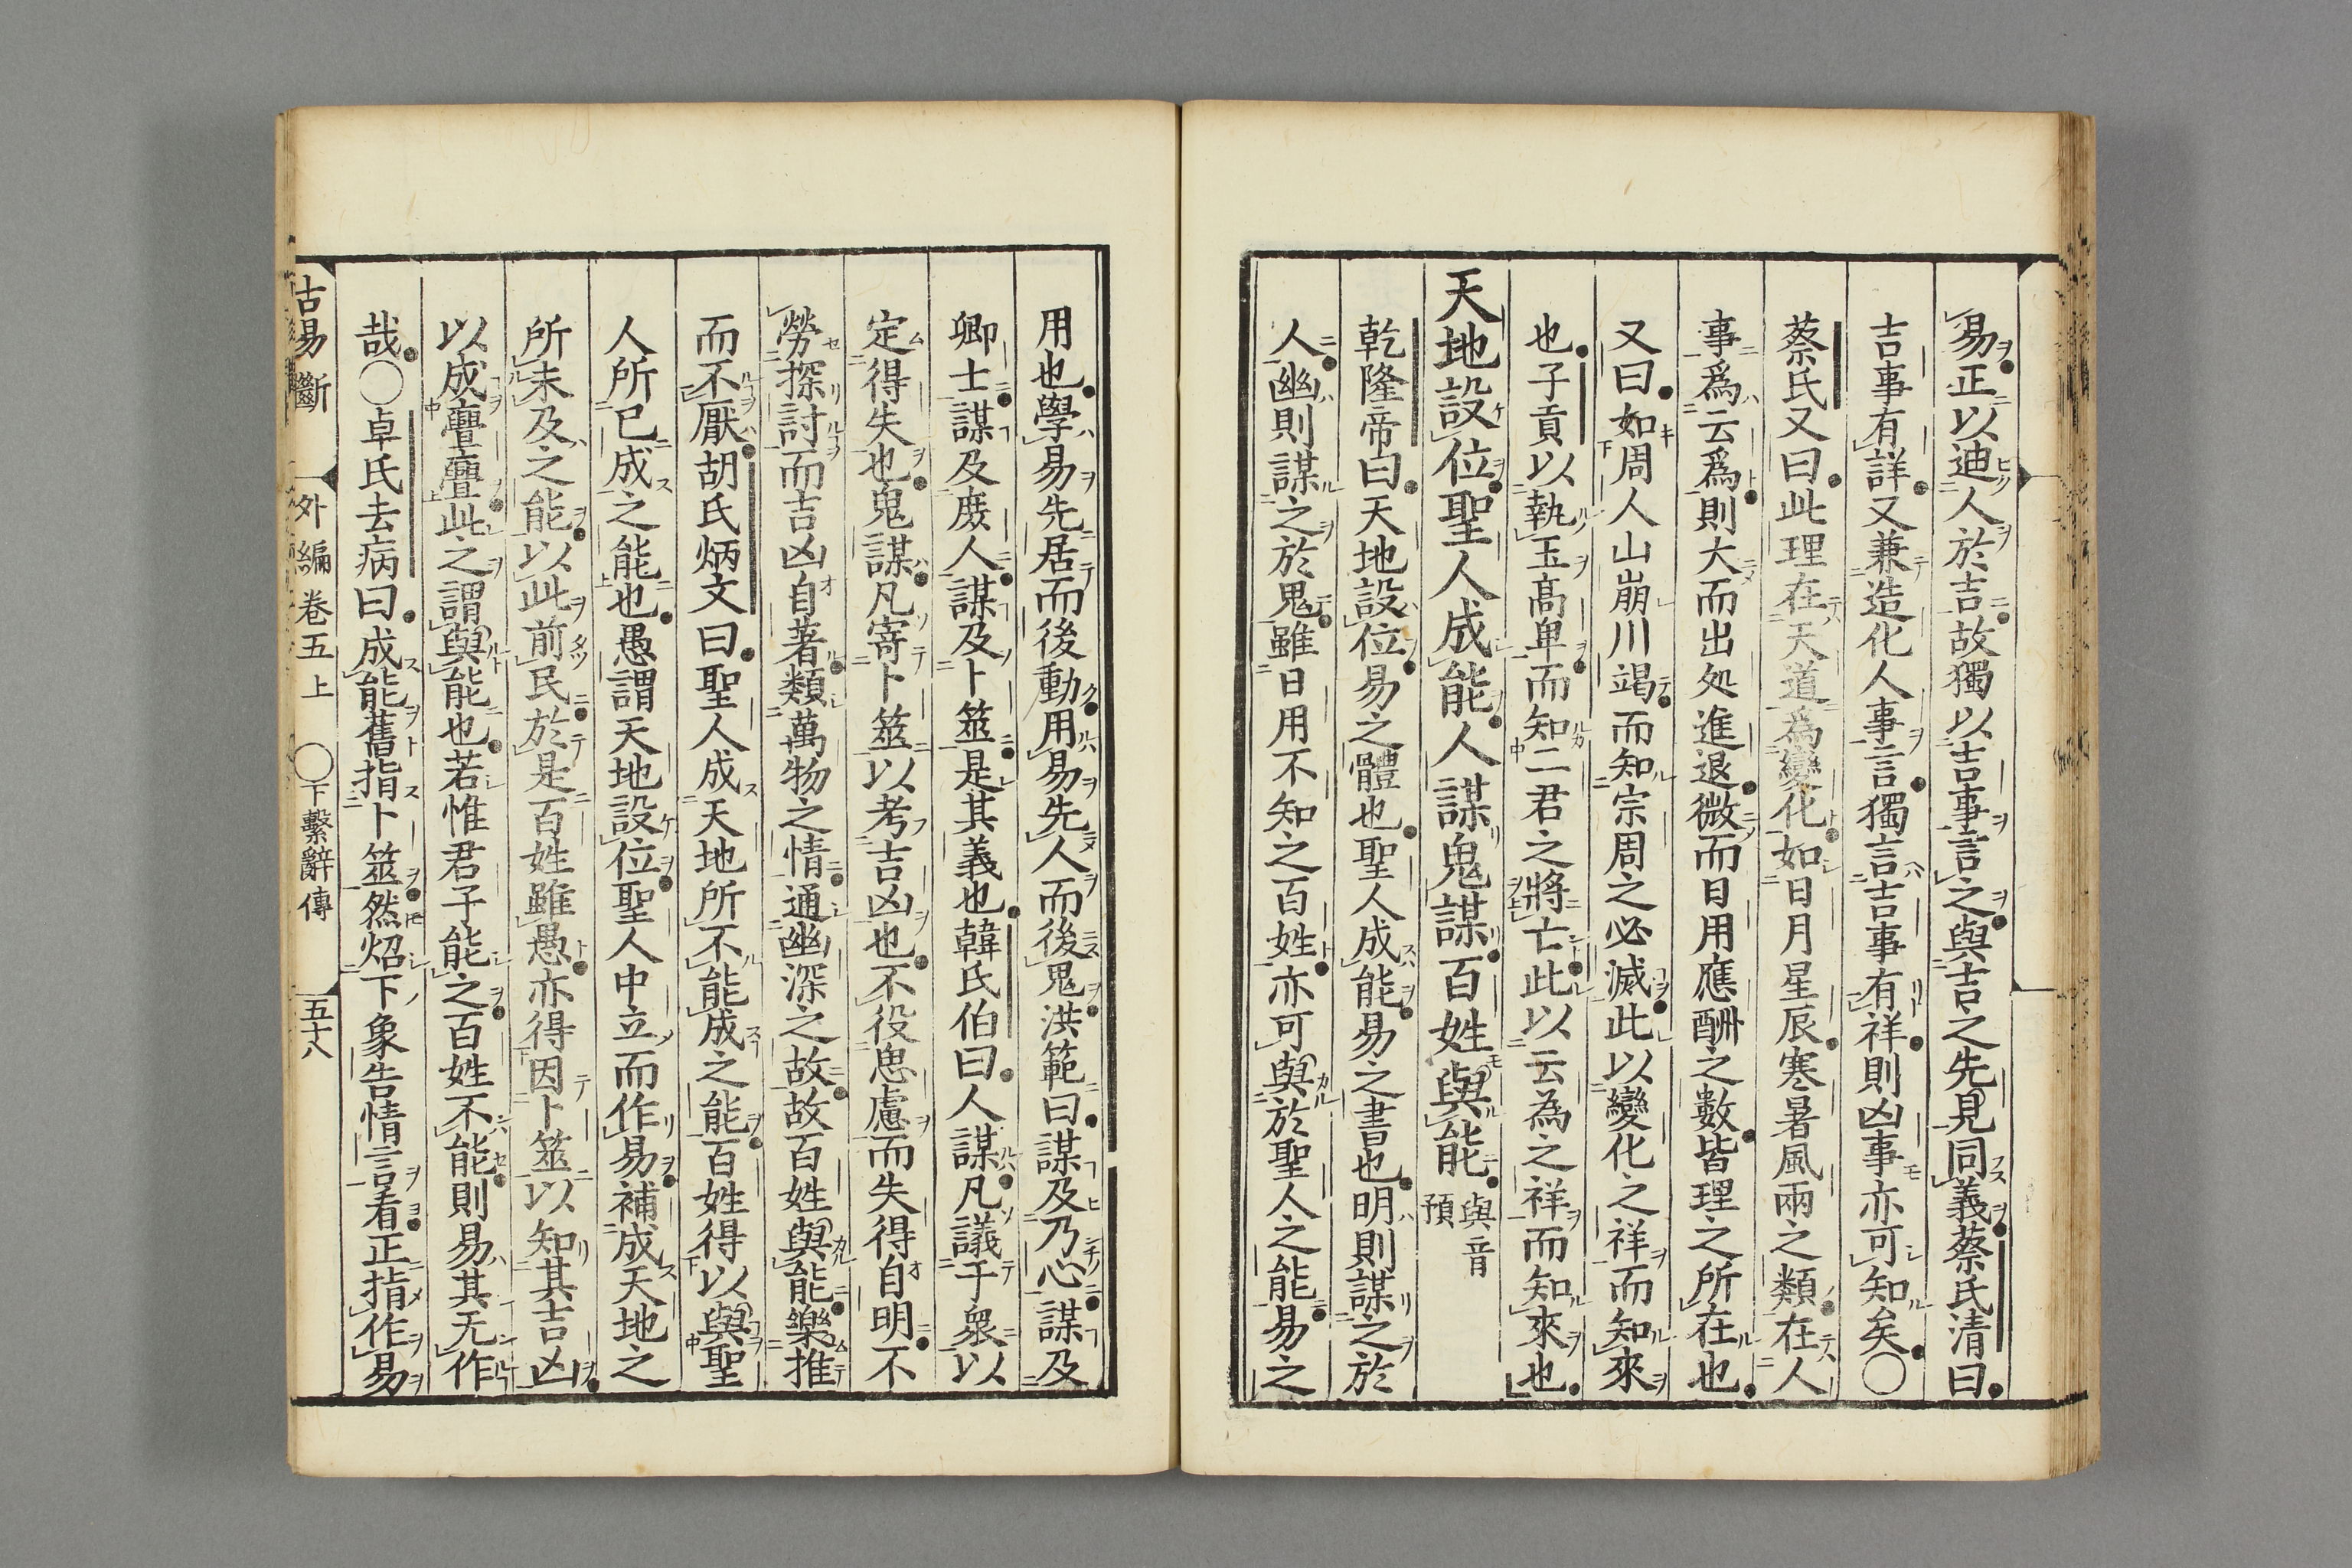 易正以迪人於吉故獨以吉事言之與吉之先見同義蔡氏清曰
吉事有詳又兼造化人事言獨言吉事有祥則凶事亦可知矣〇
蔡氏又曰此理在天道爲變化如日月星辰寒暑風兩之類在人
事爲云爲則大而出处進退微而日用應酬之數皆理之所在也
又曰如周人山崩川竭而知宗周之必滅此以變化之祥而知來
也子貢以執玉高卑而知二君之將亡此以云為之祥而知來也
天地設位聖人成能人謀鬼謀百姓與能與音預
乾隆帝曰天地設位易之體也聖人成能易之書也明則謀之於
人幽則謀之於鬼雖日用不知之百姓亦可與於聖人之能易之
用也學易先居而後動用易先人而後鬼洪範曰謀及乃心謀及
卿士謀及庶人謀及卜筮是其義也韓氏伯曰人謀凡議于衆以
定得失也鬼謀凡寄卜筮以考吉凶也不役思慮而失得自明不
勞探討而吉凶自著類萬物之情通幽深之故故百姓與能樂推
而不厭胡氏炳文曰聖人成天地所不能成之能百姓得以與聖
人所已成之能也愚謂天地設位聖人中立而作易補成天地之
所未及之能以此前民於是百姓雖愚亦得因卜筮以知其吉凶
以成亹亹此之謂與能也若惟君子能之百姓不能則易其无作
哉〇卓氏去病曰成能舊指卜筮然炤下象告情言看正指作易
古易斷 外編卷五上 〇下繫辭傳 五十八